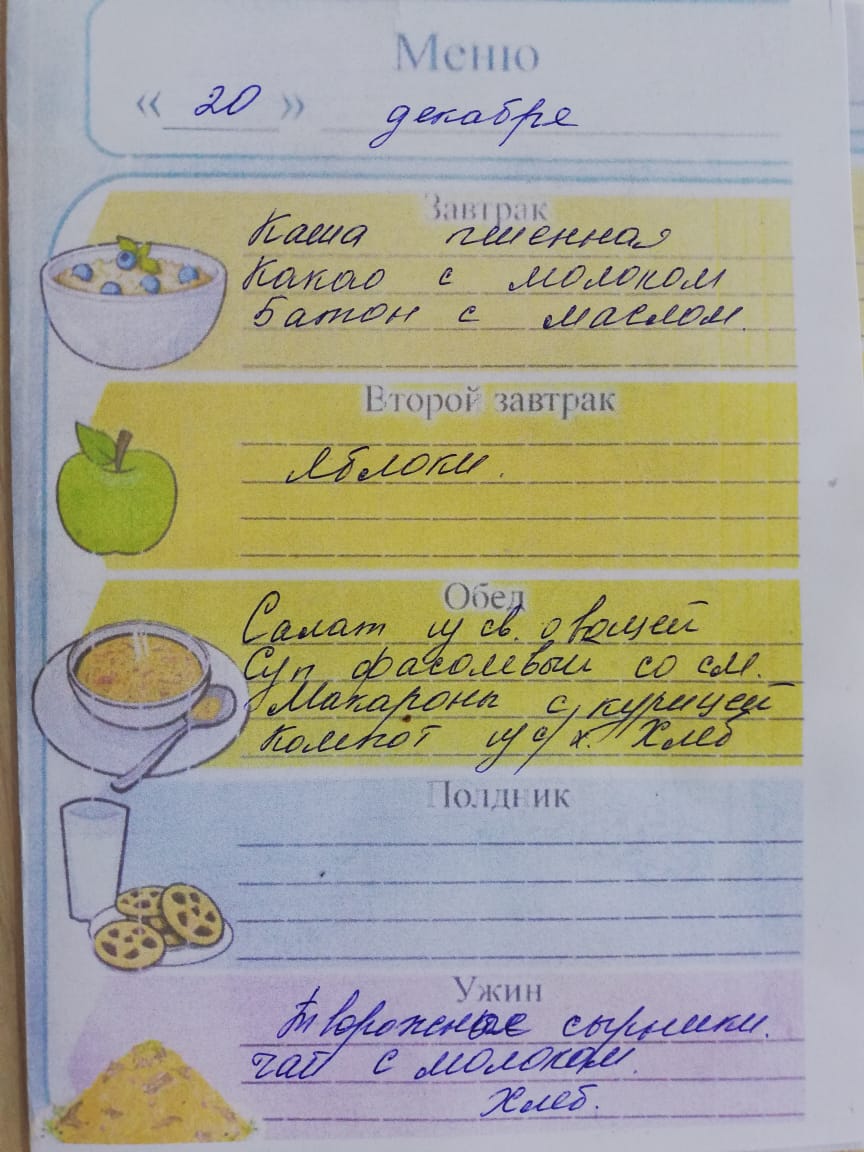 Меню
« 20 » декабря
Завтрак
Каша пшенная
Какао с молоком
Батон с маслом.
Второй завтрак
Яблоки.
Обед
Салат из св. овощей
Суп фасолевый со см.
Макароны с курицей
Компот из с/х. Хлеб
Полдник
Ужин
Творожные сырники.
Чай с молоком.
Хлеб.